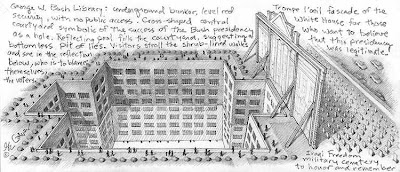 George W. Bush Library: underground bunker, level red
security, with no public access. Cross-shaped central
courtyard symbolic of the success of the Bush presidency
as a hole. Reflecting pool fills the courtyard, suggesting a
bottomless pit of lies. Visitors stroll the shrub-lined walks
and see in the reflection
below, who is to blame:
themselves,
the voters.
Trompe l'oeil facade of the
White House for those
who want to believe
that this presidency
was legitimate.
Iraqi Freedom
military cemetery,
to honor and remember